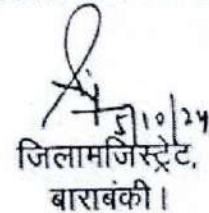 5/10/24
जिलामजिस्ट्रेट,
बाराबंकी।